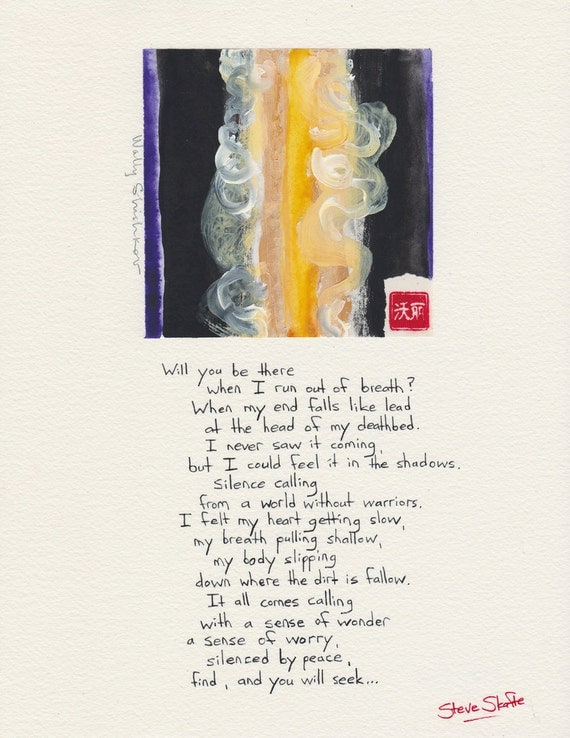 Wally Shishkov
沃丽
Will you be there
when I run out of breath?
When my end falls like lead
at the head of my deathbed.
I never saw it coming,
but I could feel it in the shadows.
Silence calling
from a world without warriors.
I felt my heart getting slow,
my breath pulling shallow,
my body slipping
down where the dirt is fallow.
It all comes calling
with a sense of wonder
a sense of worry,
silenced by peace,
find, and you will seek...
Steve Skafte